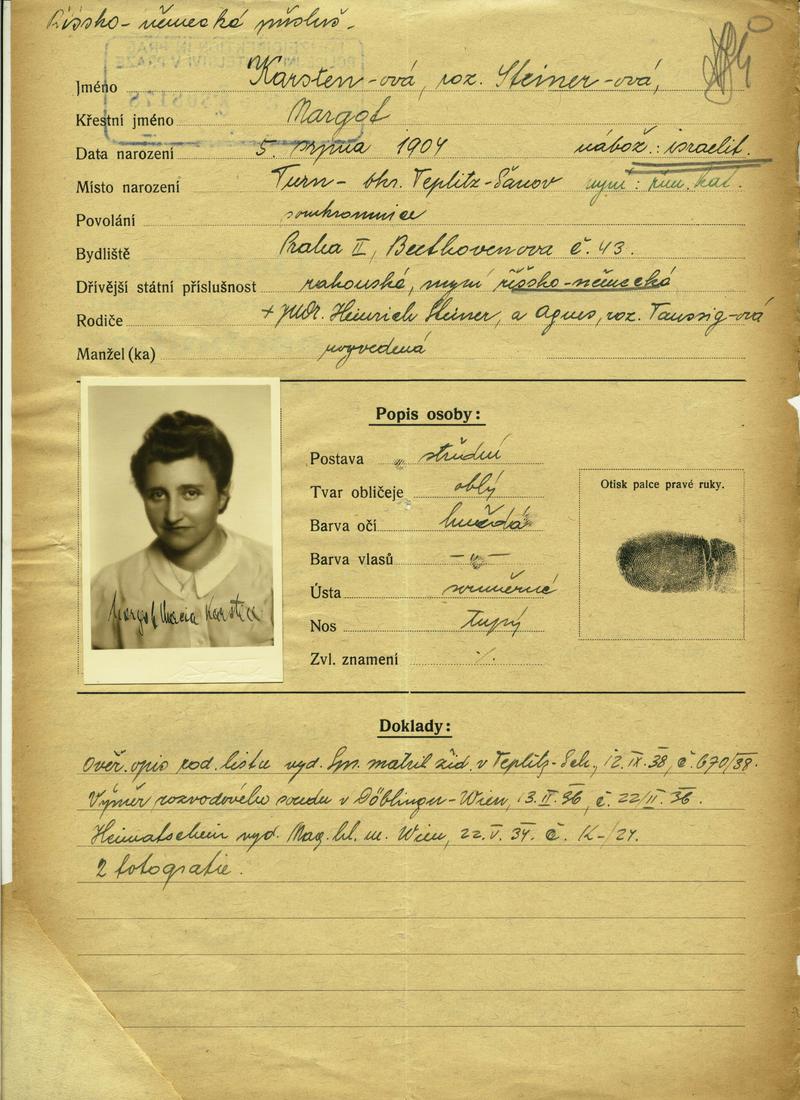 Říšsko-německá přísluš.
POLIZEIDIREKTION IN PRAG
POLICEJNÍ ŘEDITELSTVÍ V PRAZE
Jméno Karsten-ová, roz. Steiner-ová,
Křestní jméno Margot
Data narození 5. srpna 1904 nábož.: israelit.
Místo narození Turn- okr. Teplitz-Šanov nyní: řím. kat.
Povolání soukromnice
Bydliště Praha II, Beethovenova č. 43.
Dřívější státní příslušnost rakouská, nyní říšsko-německá
Rodiče + JUDr. Heinrich Steiner, a Agnes, roz. Taussig-ová
Manžel (ka) rozvedená
Popis osoby:
Postava střední
Tvar obličeje oblý
Barva očí hnědá
Barva vlasů —„—
Ústa souměrné
Nos tupý
Zvl. znamení ./.
Otisk palce pravé ruky.
Margot Maria Karsten
Doklady:
Ověř. opis rod. listu vyd. Spr. matrik žid. v Teplitz-Sch., 12.IX.38, č. 670/38.
Výměr rozvodového soudu v Döblingu-Wien, 13.II.36, č. 22/II.36.
Heimatschein vyd. Mag. hl. m. Wien, 22.V.34. č. K-/24.
2 fotografie.